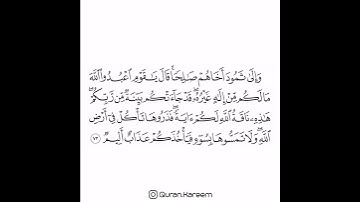 وَإِلَىٰ ثَمُودَ أَخَاهُمْ صَٰلِحًا ۗ قَالَ يَٰقَوْمِ ٱعْبُدُوا۟ ٱللَّهَ
مَا لَكُم مِّنْ إِلَٰهٍ غَيْرُهُۥ ۖ قَدْ جَآءَتْكُم بَيِّنَةٌ مِّن رَّبِّكُمْ ۖ
هَٰذِهِۦ نَاقَةُ ٱللَّهِ لَكُمْ ءَايَةً ۖ فَذَرُوهَا تَأْكُلْ فِىٓ أَرْضِ
ٱللَّهِ ۖ وَلَا تَمَسُّوهَا بِسُوٓءٍ فَيَأْخُذَكُمْ عَذَابٌ أَلِيمٌ ٧٣
Quran.Kareem